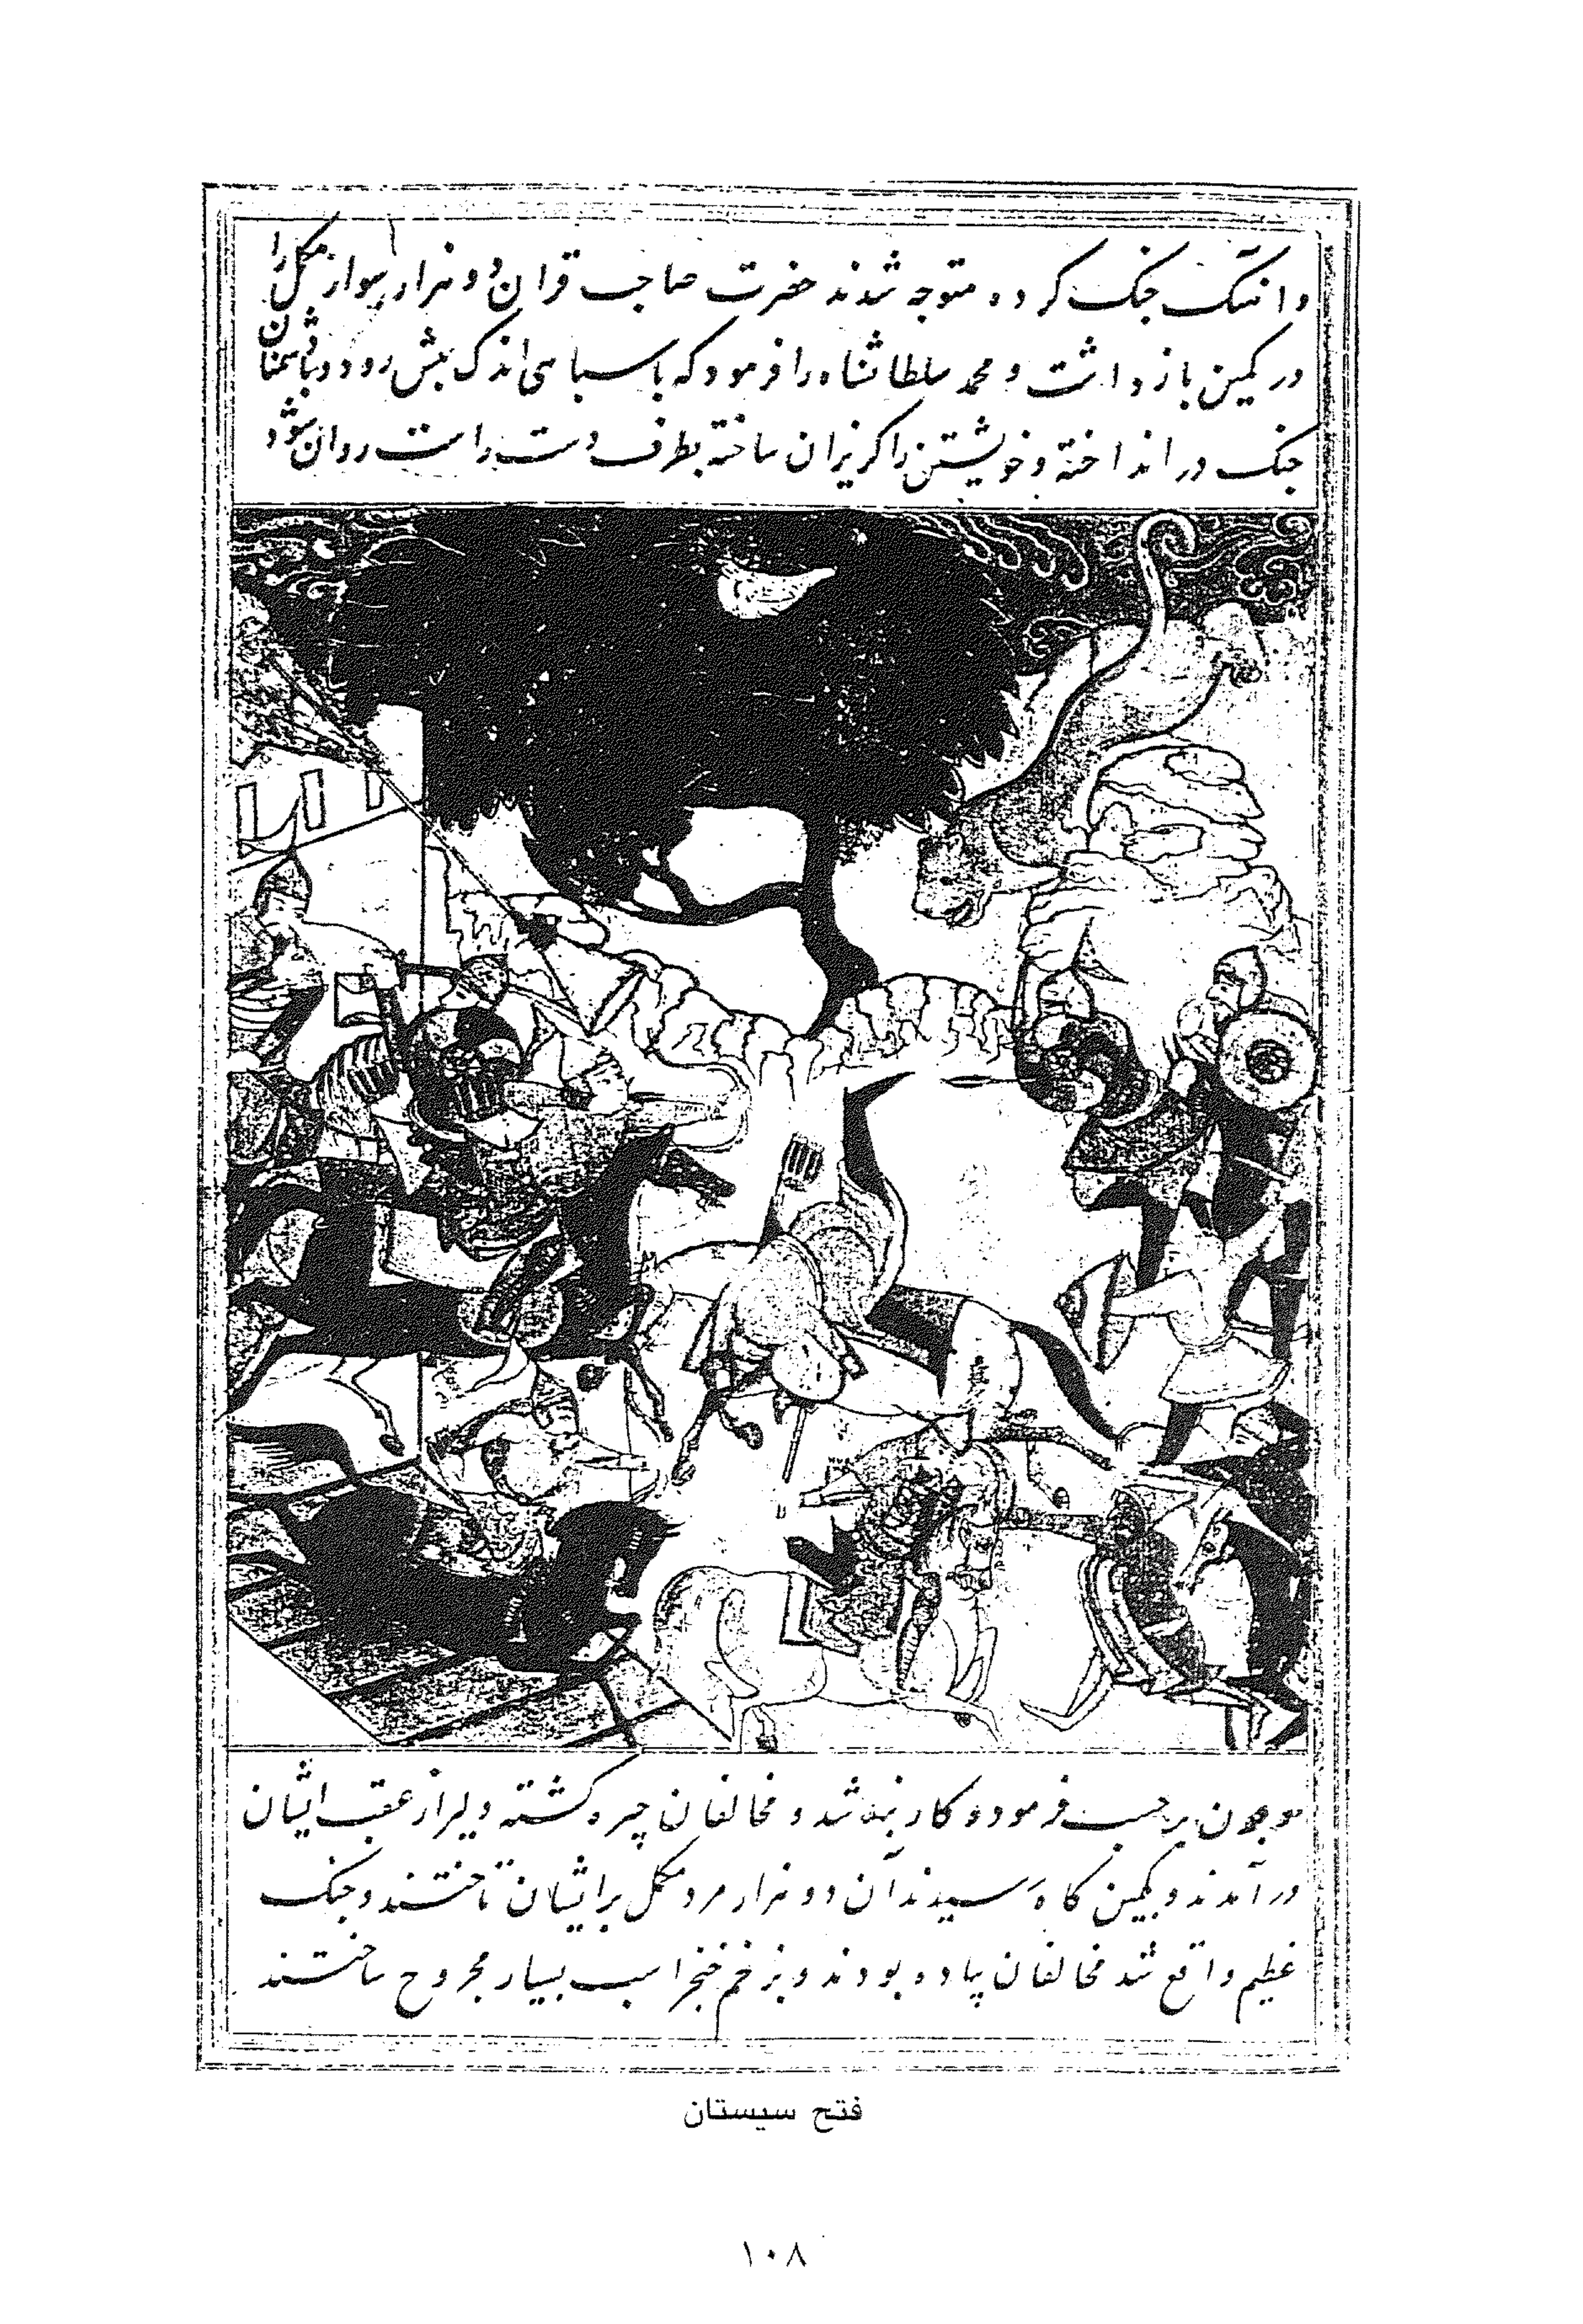 وانتک جنک کرده متوجه شدند حضرت صاحب قران دو هزار سوار مکمل را
در کمین باز داشت و محمد سلطانشاه را فرمود که با سپاهی اندک پیش رود و با دشمنان
جنک در انداخته و خویشتن را کریزان ساخته بطرف دست راست روان شود
برحسب فرموده کاربند شد و مخالفان چیره کشته و لیر از عقب ایشان
در آمدند و بکمین کاه رسیدند آن دو هزار مرد مکمل بر ایشان تاختند و جنک
عظیم واقع شد مخالفان پیاده بودند و بزخم خنجر اسب بسیار مجروح ساختند
فتح سیستان
۱۰۸